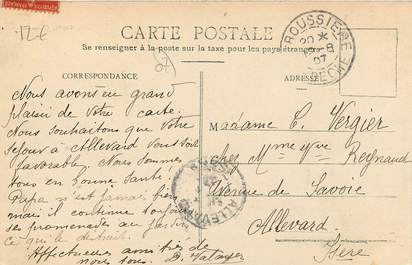 12€
CARTE POSTALE
Se renseigner à la poste sur la taxe pour les pays étrangers
CORRESPONDANCE
ADRESSE
Nous avons eu grand
plaisir de votre carte.
Nous souhaitons que votre
séjour à Allevard vous soit
favorable. Nous sommes
tous en bonne santé!
Papa n'est jamais bien
mais il continue toujours
ses promenades au jardin
ce qui le distrait.
Affectueuse amitiés de
nous tous.
Madame C. Vergier
chez Mme Vve Reynaud
Avenue de Savoie
Allevard.
Isère
20
07
ALLEVARD